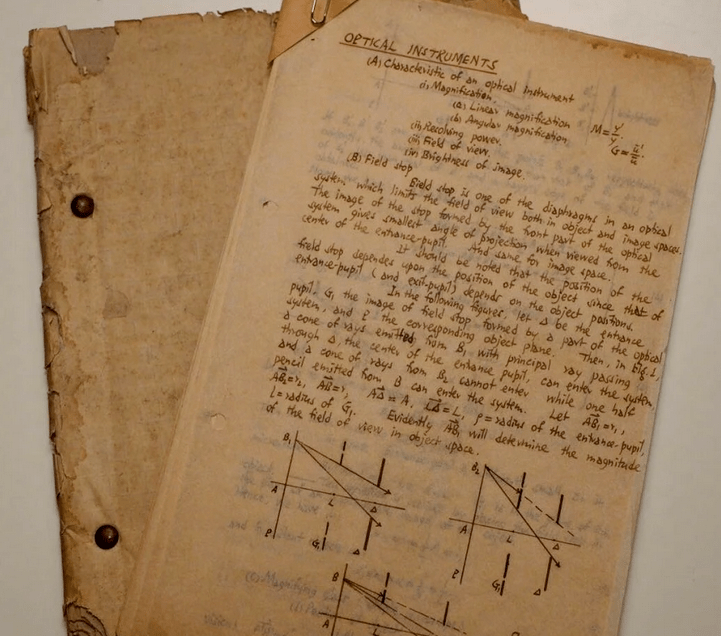 OPTICAL INSTRUMENTS
(A) Characteristic of an optical Instrument
(i) Magnification
(a) Linear magnification M = y'/y.
(b) Angular magnification G = u'/u.
(ii) Resolving power.
(iii) Field of view.
(iv) Brightness of image.
(B) Field stop
Field stop is one of the diaphragms in an optical
system which limits the field of view both in object and image spaces.
The image of the stop formed by the front part of the optical
system gives smallest angle of projection when viewed from the
center of the entrance-pupil. And same for image space.
It should be noted that the position of the
field stop dependes upon the position of the object since that of
entrance-pupil (and exit-pupil) depends on the object positions.
In the following figures, let Δ be the entrance
pupil, G₁ the image of field stop formed by a part of the optical
system, and P the corresponding object plane. Then, in Fig. 1
a cone of rays emitted from B₁ with principal ray passing
through Δ, the center of the entrance pupil, can enter the system,
and a cone of rays from B₂ cannot enter while one half
pencil emitted from B can enter the system. Let AB₁=r₁,
AB₂=r₂, AB=r, AΔ=A, LΔ=L, ρ=radius of the entrance-pupil,
l=radius of G₁. Evidently AB₁ will determine the magnitude
of the field of view in object space.
B₁
A
L
Δ
P
G₁
Δ
B₂
A
L
Δ
P
G₁
Δ
B
A
L